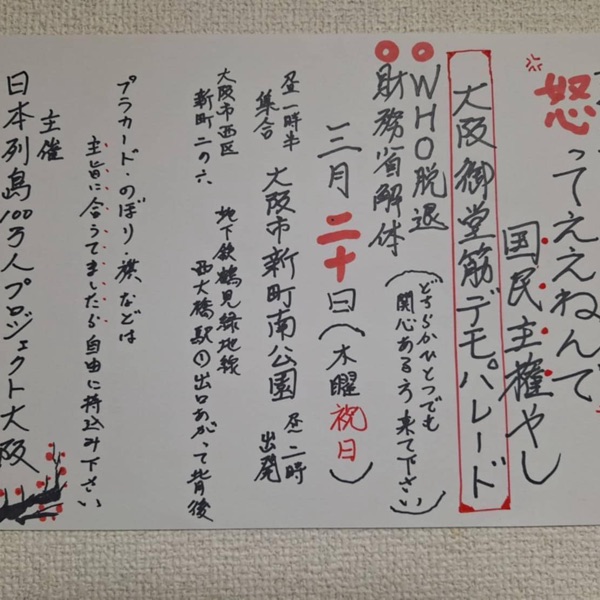 怒ってええねんて
国民主権やし
大阪御堂筋デモパレード
◎WHO脱退
◎財務省解体
(どちらかひとつでも
関心ある方来て下さい)
三月二十日(木曜祝日)
昼一時半
集合
大阪市新町南公園
昼二時
出発
大阪市西区
新町二の六
地下鉄鶴見緑地線
西大橋駅①出口あがって背後
プラカード・のぼり・旗などは
主旨に合うてましたら自由に持込み下さい
主催
日本列島100万人プロジェクト大阪